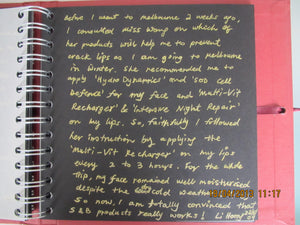 Before I went to Melbourne 2 weeks ago,
I consulted Miss Wong on which of
her products will help me to prevent
crack lips as I am going to Melbourne
in Winter. She recommended me to
apply 'Hydro Dynamics' and 'SOD Cell
Defence' for my face and 'Multi-Vit
Recharger' & 'Intensive Night Repair'
on my lips. So, faithfully I followed
her instruction by applying the
'Multi-Vit Recharger' on my lips
every 2 to 3 hours. For the whole
trip, my face remained well moisturized
despite the cold weather
so now, I am totally convinced that
S&B products really works!
13:17